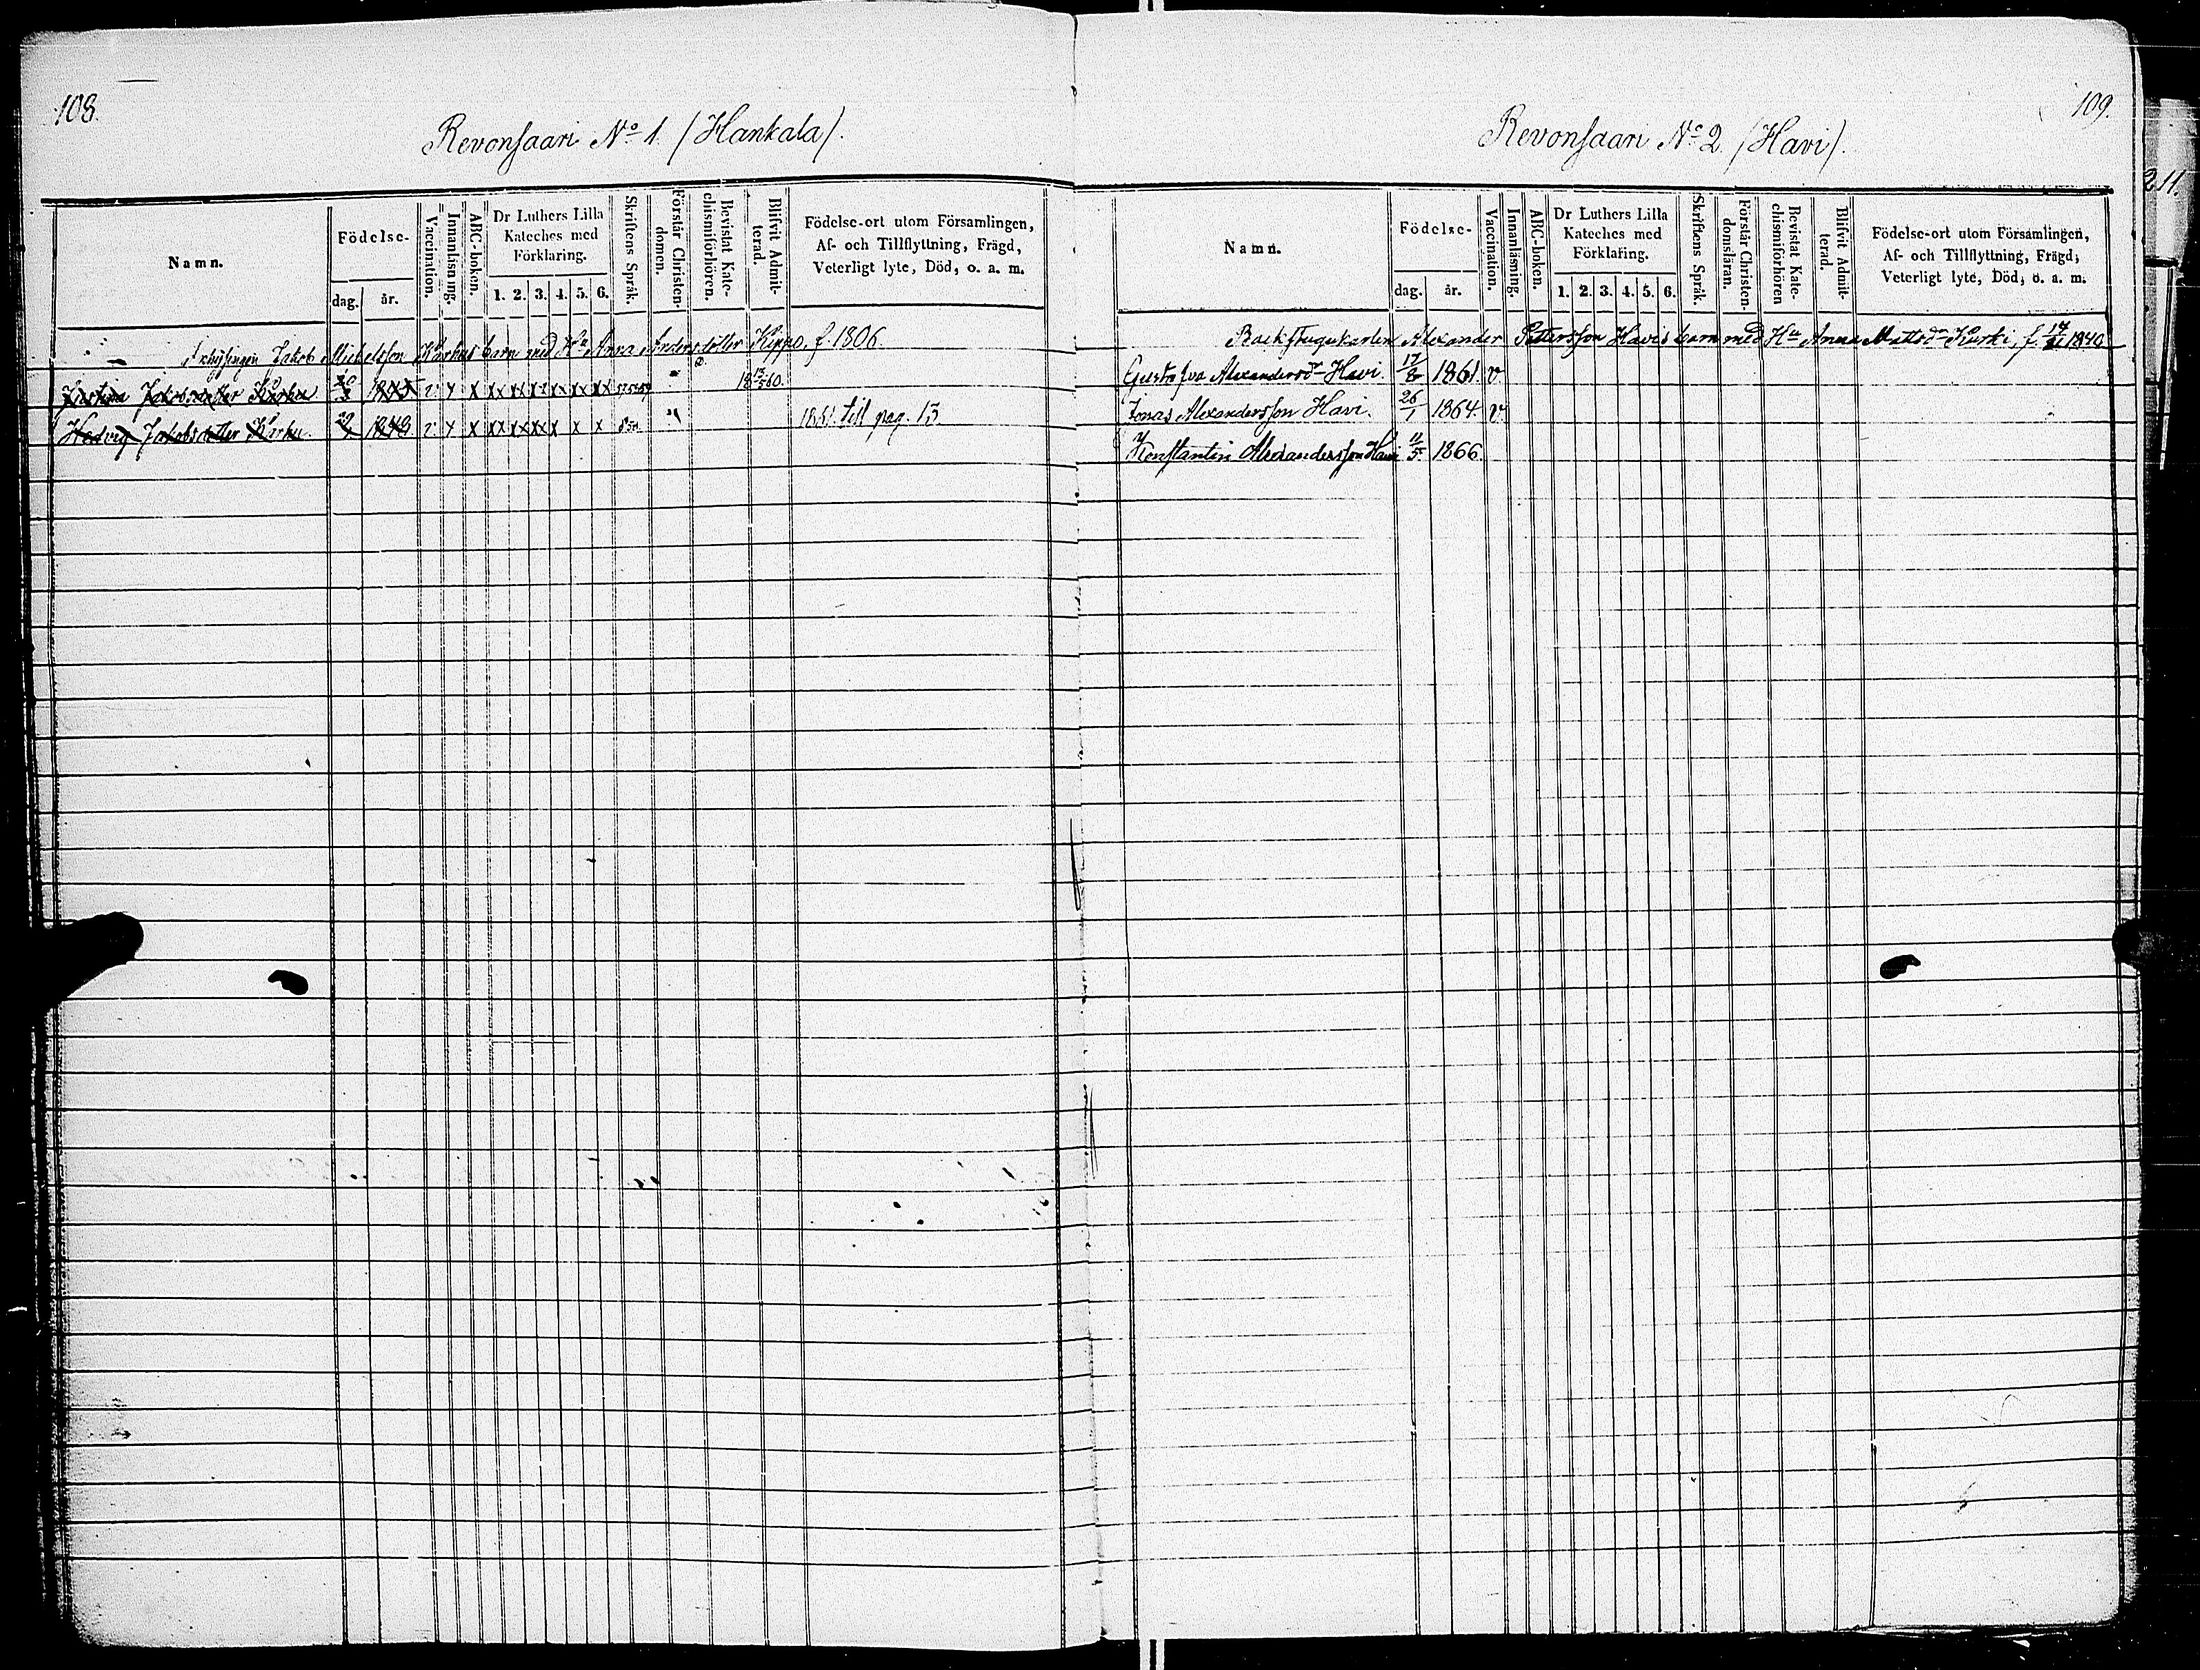 108.
Revonsaari No 1. (Hankala).
Namn.
Födelse-
dag.
år.
Vaccination.
Innanläsning.
ABC-boken.
Dr Luthers Lilla
Kateches med
Förklaring.
1. 2. 3. 4. 5. 6.
Skriftens Språk.
Förstår Christen-
domen.
Bevistat Kate-
chismiförhören.
Blifvit Admit-
terad.
Födelse-ort utom Församlingen,
Af- och Tillflyttning, Frägd,
Veterligt lyte, Död, o. a. m.
Inhysingen Jakob Michelsson Kärhus barn med Hu Anna Andersdotter Kippo, f. 1806.
Justina Jakobsdotter 1845 v x x xx xx xx xx xx xx
Hedvig Jakobsdotter 1848 v x x xx xx xx x x x 1861 till pag. 13.
109.
Revonsaari No 2. (Havi).
Namn.
Födelse-
dag.
år.
Vaccination.
Innanläsning.
ABC-boken.
Dr Luthers Lilla
Kateches med
Förklaring.
1. 2. 3. 4. 5. 6.
Skriftens Språk.
Förstår Christen-
domsläran.
Bevistat Kate-
chismiförhören
Blifvit Admit-
terad.
Födelse-ort utom Församlingen,
Af- och Tillflyttning, Frägd,
Veterligt lyte, Död, o. a. m.
Backstugukarlen Alexander Pettersson Havis barn med Hu Anna Mattsdr Kurki, f. 1840
Gustafva Alexandersdr Havi. 17/8 1861. v.
Jonas Alexandersson Havi. 26/1 1864. v.
Konstantin Alexandersson Havi 11/5 1866.
211.